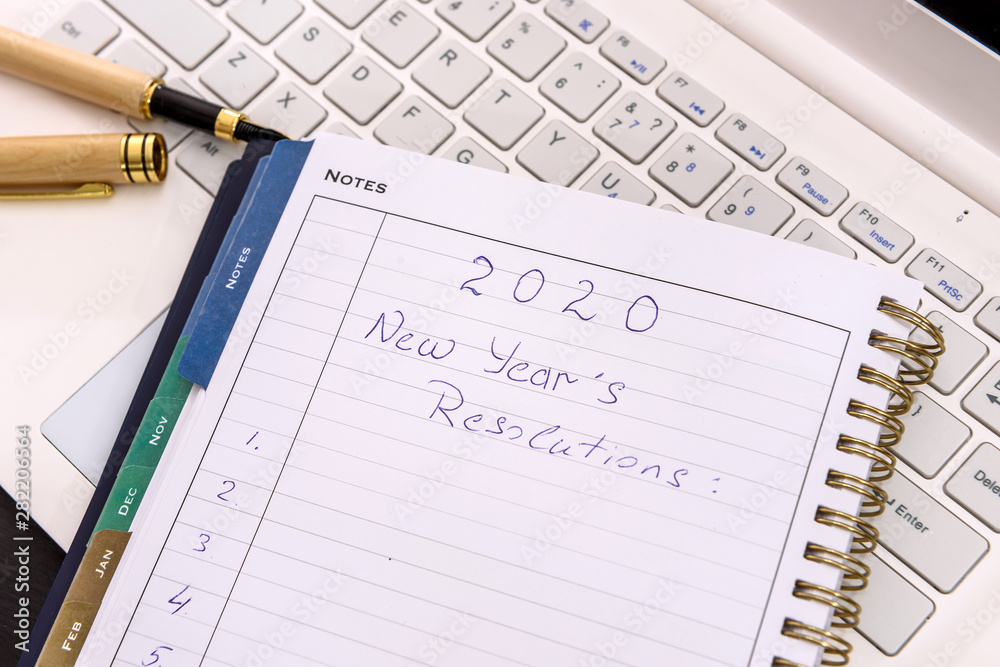 Ctrl
S
E
4
%
5
F5
F6
Z
D
R
^
6
F7
Alt
X
F
T
&
7 7 ?
F8
G
Y
*
8 8
F9
Pause
U
(
9 9
F10
Insert
)
F11
PrtSc
}
Delete
Enter
NOTES
NOTES
2020
New Year's
Resolutions:
1.
2.
3.
4.
5.
NOV
DEC
JAN
FEB
Adobe Stock | #282206564